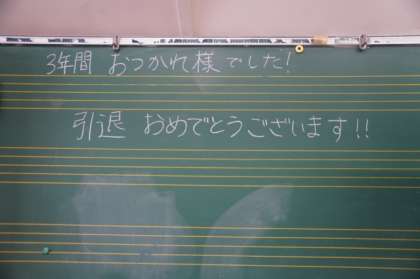 3年間 おつかれ様でした!
引退 おめでとうございます!!